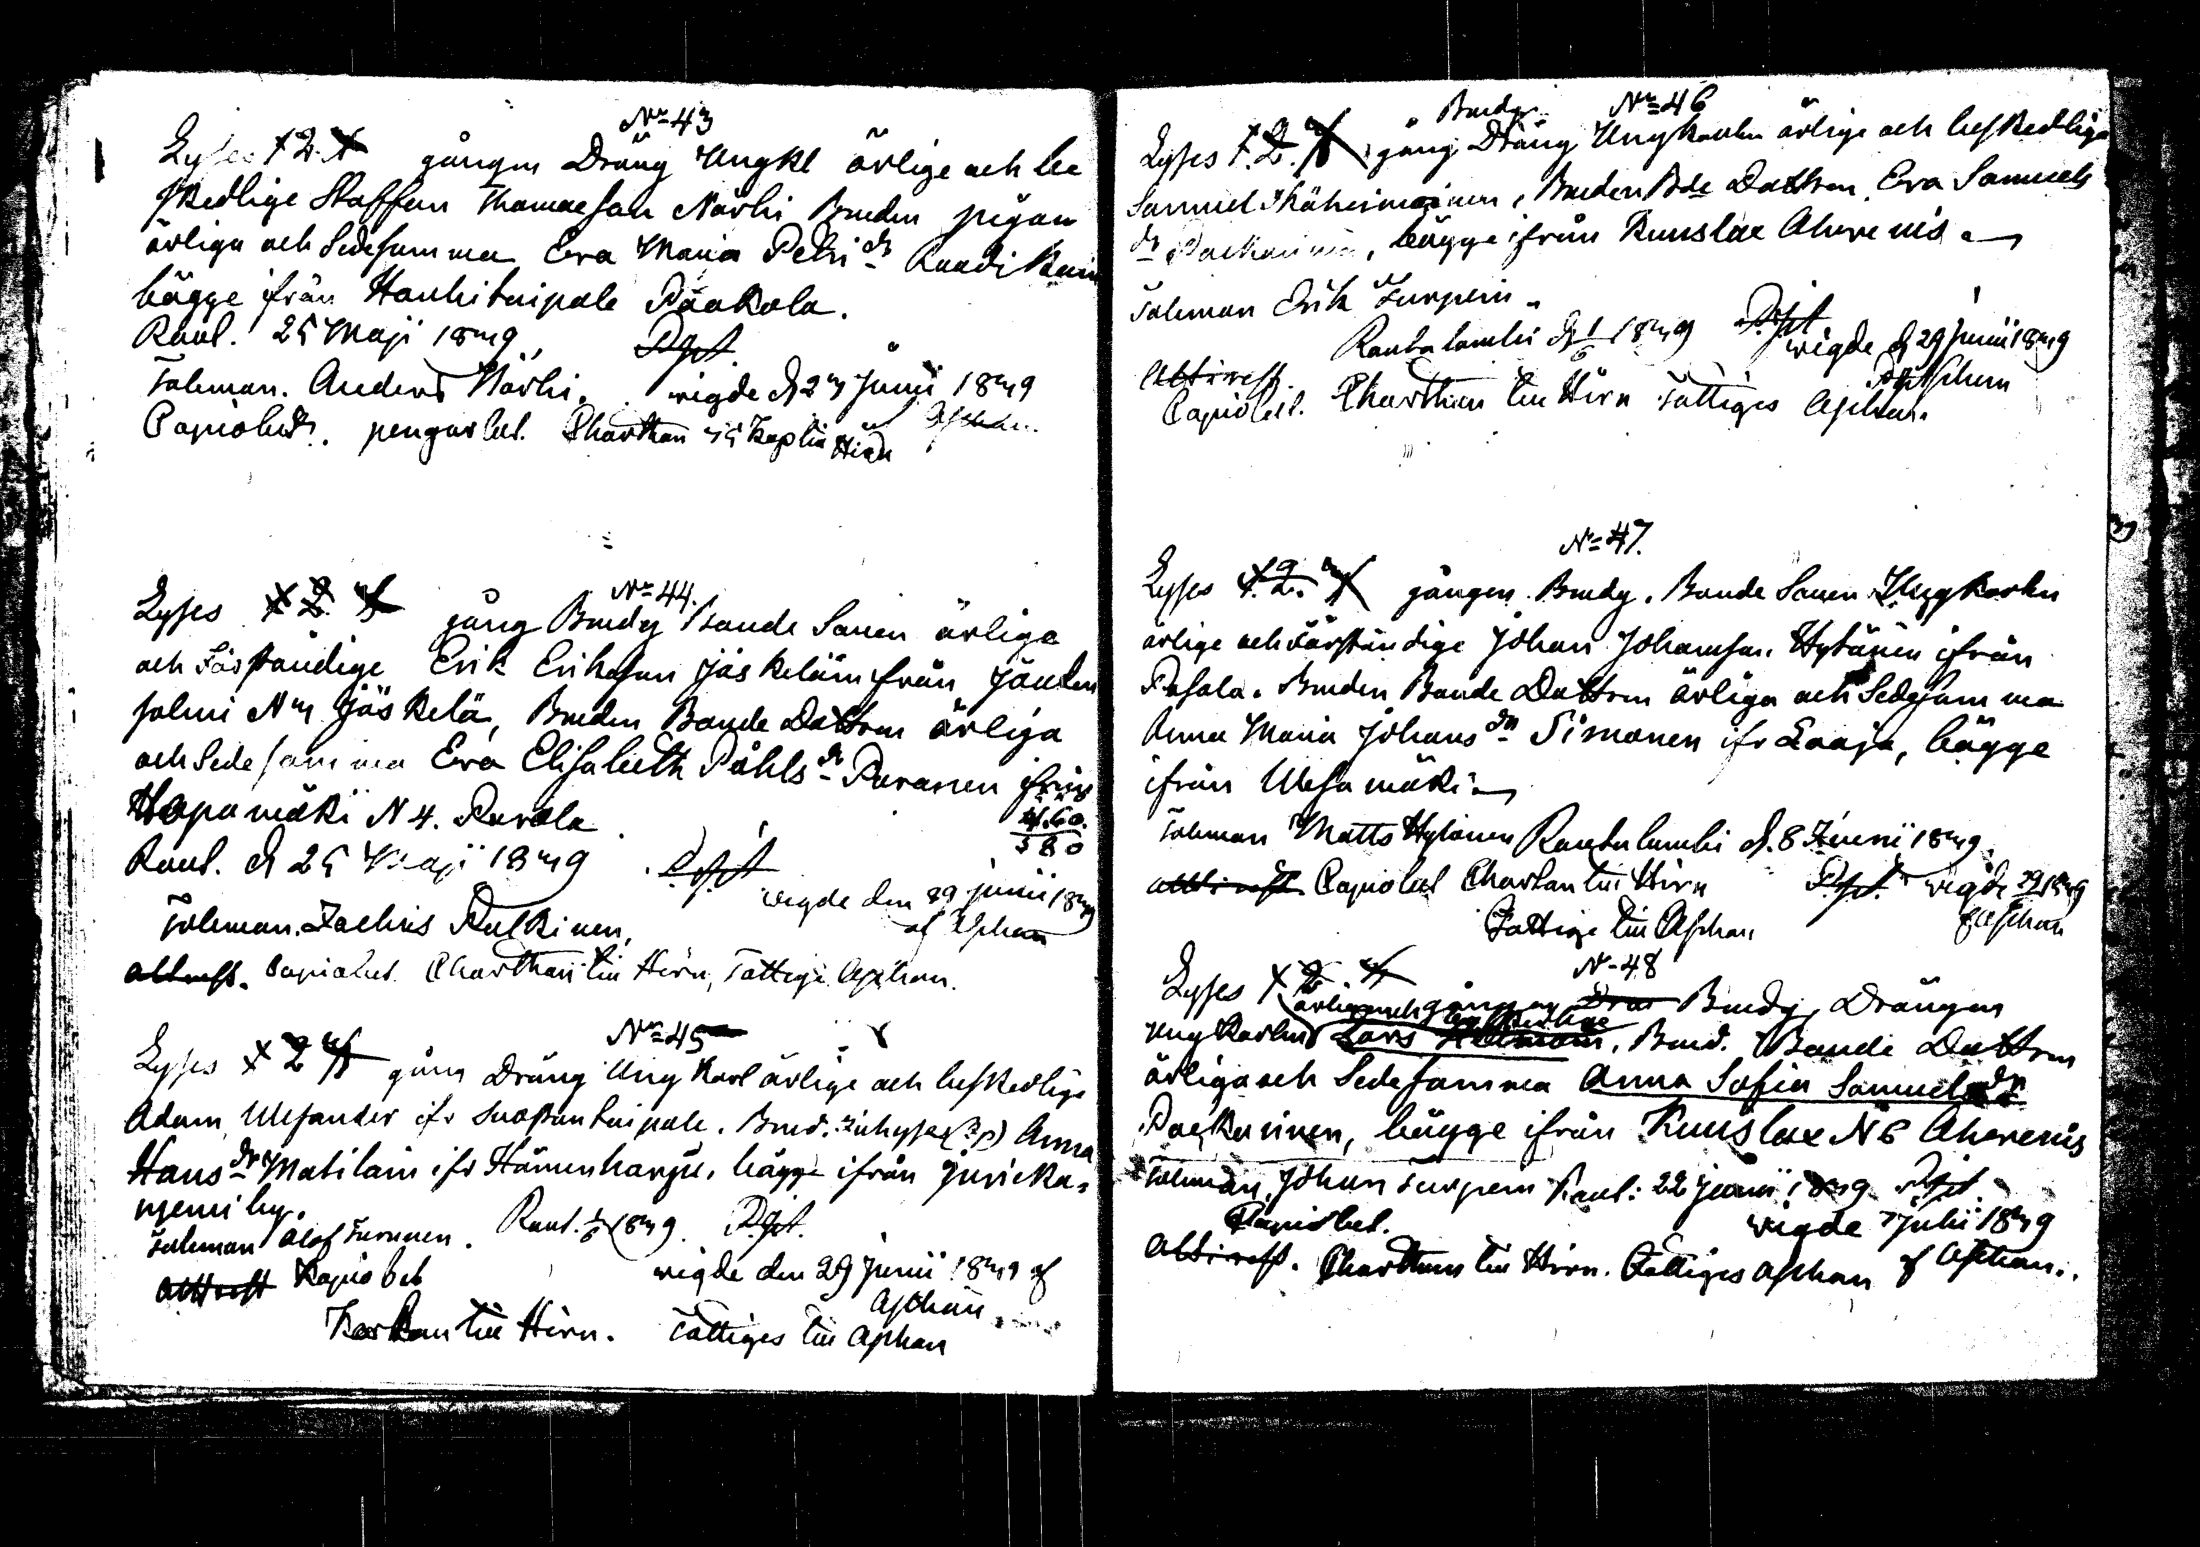 No 43
Lyses 1 2 3 gången Dräng Ungkl ärlige och be
skedlige Staffan Thomasson Närhi Bruden pigan
ärliga och Sedesamma Eva Maria Petri dr
bägge ifrån Hankitaipale Paakola.
Raut. 25 Maji 1849
Taleman. Anders Närhi. wigde d 24 Junii 1849
Capiolud. pengar bet. Charthan Hirn Aschan
No 44.
Lyses 1 2 3 gång Brudg Bonde Sonen ärlige
och Förståndige Erik Eriksson Jäskeläin från
salmi N 4 Jäskelä, Bruden Bonde Dottren ärliga
och Sedesamma Eva Elisabeth Påhls dr Puranen ifrån
Hapamäki N 4. Purola
4.60.
580
Raut. d 25 Maji 1849
wigde den 29 junii 1849
af Aschan
Taleman. Zachris Pulkinen,
Attest. Capiolud. Charthan till Hirn, Fattige Aschan.
No 45
Lyses 1 2 3 gång Dräng Ungkarl ärlige och beskedlige
Adam Ulfsander ifr Suontaipale. Brud. Anna
Hans dr Matilain ifr Hämenharju, bägge ifrån
niemi by.
Taleman Olof Turunen. Raut. 1/6 1849.
wigde den 29 Junii 1849 af
Aschan
Attest Kapio bet
Karthan till Hirn. Fattiges till Aschan
Brudg. No 46
Lyses 1. 2. 3 gång Dräng Ungkarlen ärlige och beskedlige
Samuel, Bruden Bde Dottren Eva Samuels
dr, bägge ifrån Kuuslax Ahvenis
Taleman Erik Turpein.
Rautalambi d 1/6 1849
wigde d 29 Junii 1849
Aschan
Attest.
Capiolud. Charthan till Hirn Fattiges Aschan.
No 47.
Lyses 1. 2. 3 gången Brudg. Bonde Sonen Ungkarlen
ärlige och förståndige Johan Johansson Hytönen ifrån
Pasala. Bruden Bonde Dottren ärliga och Sedesamma
Anna Maria Johans dr Simonen ifr Laaja, bägge
ifrån Wesamäki
Taleman Matts Hytönen Rautalambi d. 8 Junii 1849.
Attest Capiolud Charthan till Hirn wigde 29/6 1849
Fattige till Aschan
af Aschan
No 48
Lyses 1 2 3 gången Brudg. Drängen
ärlige och beskedlige
ungkarlen Lars, Brud. Bonde Dottren
ärliga och Sedesamma Anna Sofia Samuels dr
Packarinen, bägge ifrån Kuuslax N 6 Ahvenis
Taleman, Johan Turpein Raut: 22 junii 1849
Capiolud.
wigde 7 julii 1849
Attest. Charthan till Hirn. Fattiges Aschan af Aschan.